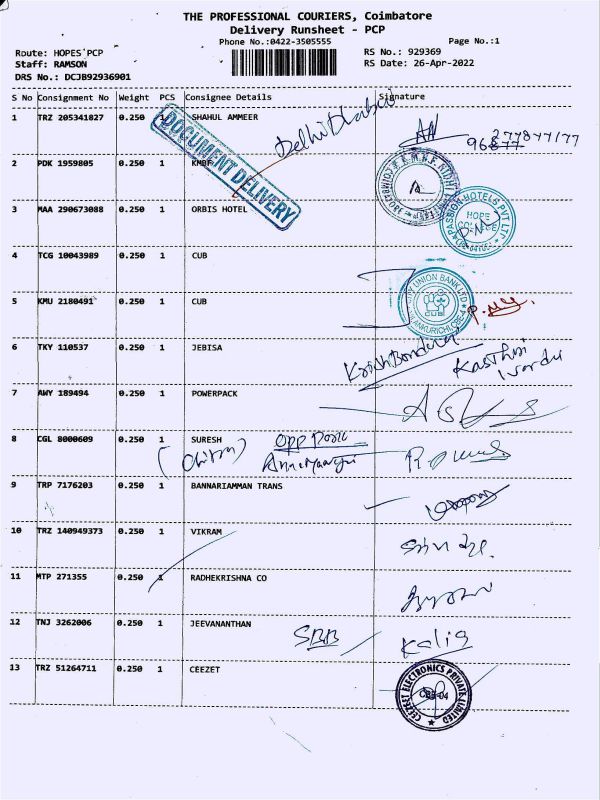 THE PROFESSIONAL COURIERS, Coimbatore
Delivery Runsheet - PCP
Phone No.:0422-3505555 Page No.:1
Route: HOPES PCP RS No.: 929369
Staff: RAMSON RS Date: 26-Apr-2022
DRS No.: DCJB92936901
S No Consignment No Weight PCS Consignee Details Signature
1 TRZ 205341827 0.250 1 SHAHUL AMMEER
DOCUMENT DELIVERY
2 PDK 1959805 0.250 1 KMBF
3 MAA 290673088 0.250 1 ORBIS HOTEL
PASSION HOTELS PVT LTD
HOPE COLLEGE
4 TCG 10043989 0.250 1 CUB
5 KMU 2180491 0.250 1 CUB
CITY UNION BANK LTD
CUB
6 TKY 110537 0.250 1 JEBISA
7 AWY 189494 0.250 1 POWERPACK
8 CGL 8000609 0.250 1 SURESH
9 TRP 7176203 0.250 1 BANNARIAMMAN TRANS
10 TRZ 140949373 0.250 1 VIKRAM
11 MTP 271355 0.250 1 RADHEKRISHNA CO
12 TNJ 3262006 0.250 1 JEEVANANTHAN
SBB Kalia
13 TRZ 51264711 0.250 1 CEEZET
CEEZEET ELECTRONICS PRIVATE LIMITED